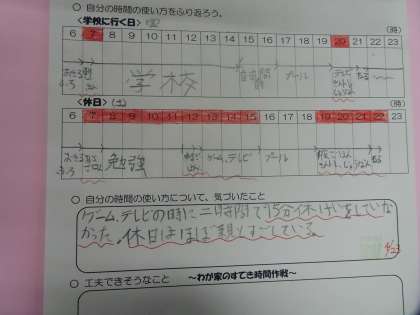 ○ 自分の時間の使い方をふり返ろう。
<学校に行く日>
(時)
6 7 8 9 10 11 12 13 14 15 16 17 18 19 20 21 22 23
学校 プール テレビ ねる
<休日> (土)
(時)
6 7 8 9 10 11 12 13 14 15 16 17 18 19 20 21 22 23
勉強 ゲーム、テレビ プール
○ 自分の時間の使い方について、気づいたこと
ゲーム、テレビの時に二時間で15分休けいをしていな
かった。休日はほぼ親とすごしている。
○ 工夫できそうなこと ～わが家のすてき時間作戦～